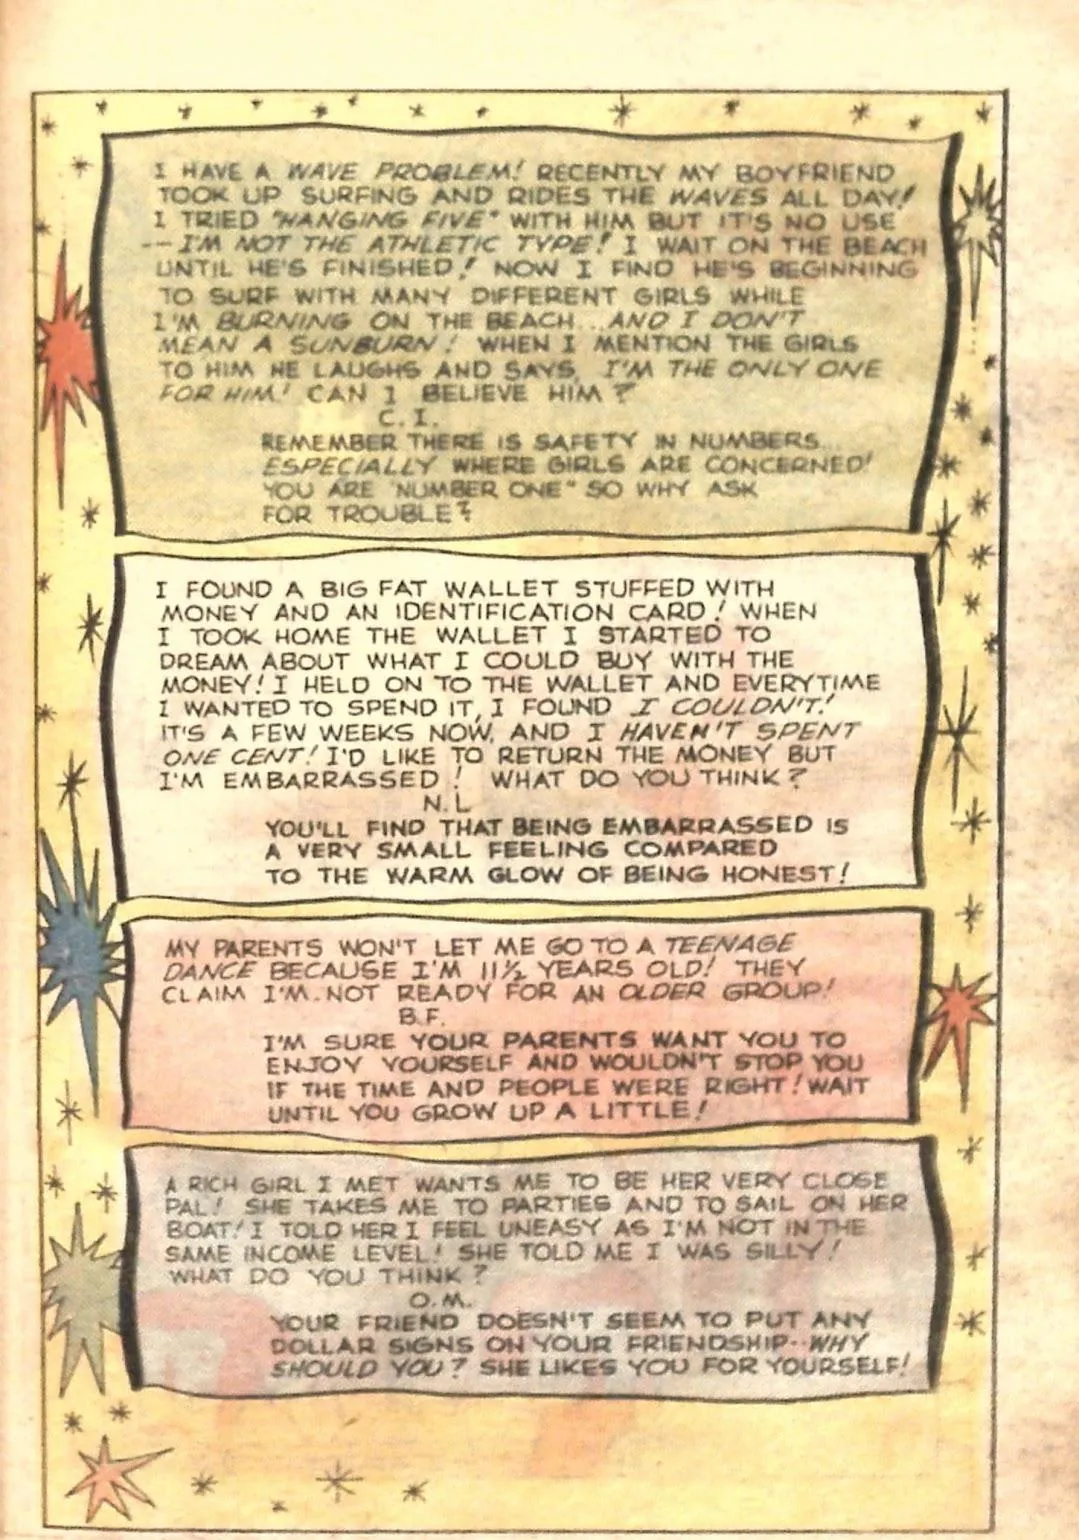 I HAVE A WAVE PROBLEM! RECENTLY MY BOYFRIEND
TOOK UP SURFING AND RIDES THE WAVES ALL DAY!
I TRIED "HANGING FIVE" WITH HIM BUT IT'S NO USE
--I'M NOT THE ATHLETIC TYPE! I WAIT ON THE BEACH
UNTIL HE'S FINISHED! NOW I FIND HE'S BEGINNING
TO SURF WITH MANY DIFFERENT GIRLS WHILE
I'M BURNING ON THE BEACH...AND I DON'T
MEAN A SUNBURN! WHEN I MENTION THE GIRLS
TO HIM HE LAUGHS AND SAYS, I'M THE ONLY ONE
FOR HIM! CAN I BELIEVE HIM?
C.I.
REMEMBER THERE IS SAFETY IN NUMBERS...
ESPECIALLY WHERE GIRLS ARE CONCERNED!
YOU ARE "NUMBER ONE" SO WHY ASK
FOR TROUBLE?
I FOUND A BIG FAT WALLET STUFFED WITH
MONEY AND AN IDENTIFICATION CARD! WHEN
I TOOK HOME THE WALLET I STARTED TO
DREAM ABOUT WHAT I COULD BUY WITH THE
MONEY! I HELD ON TO THE WALLET AND EVERYTIME
I WANTED TO SPEND IT, I FOUND I COULDN'T!
IT'S A FEW WEEKS NOW, AND I HAVEN'T SPENT
ONE CENT! I'D LIKE TO RETURN THE MONEY BUT
I'M EMBARRASSED! WHAT DO YOU THINK?
N.L
YOU'LL FIND THAT BEING EMBARRASSED IS
A VERY SMALL FEELING COMPARED
TO THE WARM GLOW OF BEING HONEST!
MY PARENTS WON'T LET ME GO TO A TEENAGE
DANCE BECAUSE I'M 11½ YEARS OLD! THEY
CLAIM I'M NOT READY FOR AN OLDER GROUP!
B.F.
I'M SURE YOUR PARENTS WANT YOU TO
ENJOY YOURSELF AND WOULDN'T STOP YOU
IF THE TIME AND PEOPLE WERE RIGHT! WAIT
UNTIL YOU GROW UP A LITTLE!
A RICH GIRL I MET WANTS ME TO BE HER VERY CLOSE
PAL! SHE TAKES ME TO PARTIES AND TO SAIL ON HER
BOAT! I TOLD HER I FEEL UNEASY AS I'M NOT IN THE
SAME INCOME LEVEL! SHE TOLD ME I WAS SILLY!
WHAT DO YOU THINK?
O.M.
YOUR FRIEND DOESN'T SEEM TO PUT ANY
DOLLAR SIGNS ON YOUR FRIENDSHIP--WHY
SHOULD YOU? SHE LIKES YOU FOR YOURSELF!